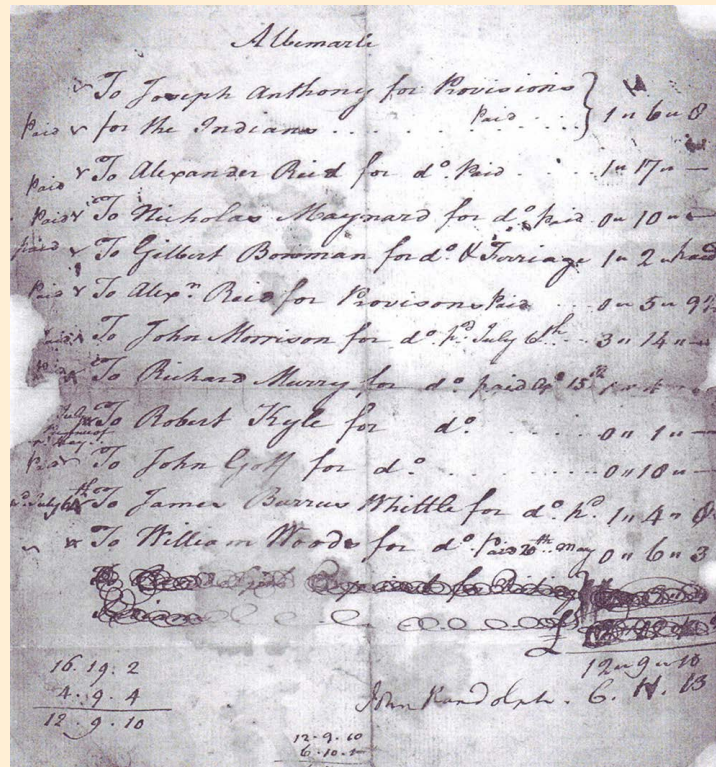 Albemarle
To Joseph Anthony for Provisions
Paid for the Indians . . . . . . Paid . . . 1 " 6 " 8
Paid To Alexander Reid for do. Paid . . . 1 " 17 " —
Paid To Nicholas Maynard for do. paid 0 " 10 " —
paid To Gilbert Bowman for do. & Ferriage 1 " 2 " paid
Paid To Alexr. Reid for Provisons Paid . . . 0 " 5 " 9
Paid To John Morrison for do. pd. July 6th 3 " 14 " —
To Richard Murry for do. paid 15th
To Robert Kyle for do. . . . . . 0 " 1 " —
Paid To John Goff for do. . . . . . . 0 " 18 " —
July 6th To James Burrus Whittle for do. pd. 1 " 4 " 8
To William Woods for do. Paid 20th May 0 " 6 " 3
£
12 " 9 " 10
16 . 19 . 2
4 . 9 . 4
John Randolph . 6 . 11 . 13
12 . 9 . 10
12 . 9 . 10
6 . 10